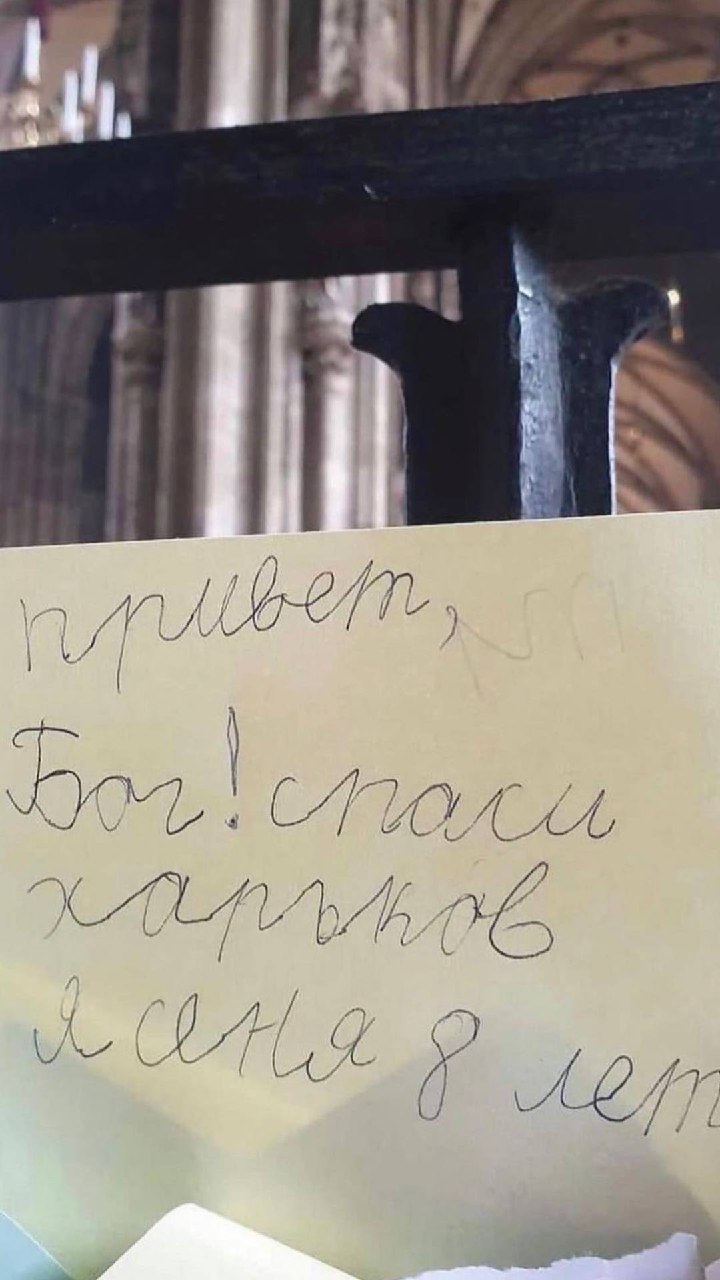 привет,
Бог! спаси
харьков
я сеня 8 лет